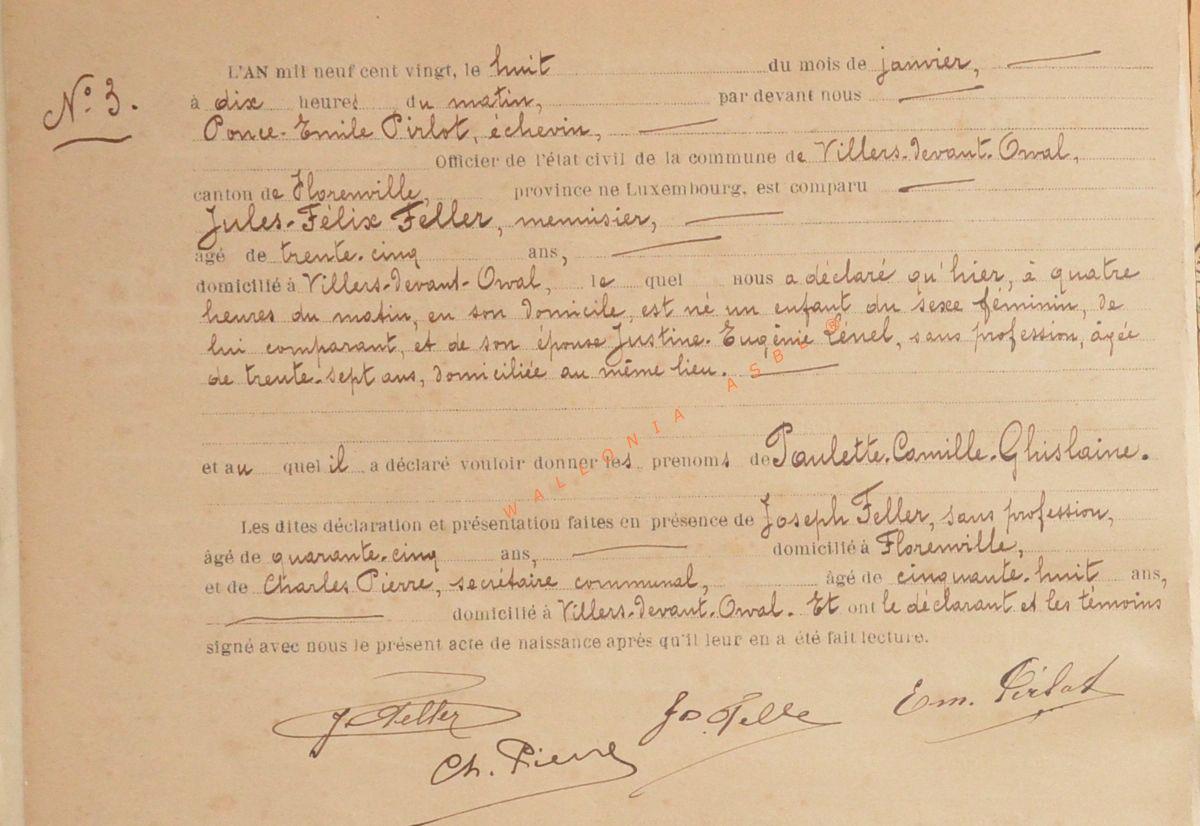 N° 3.
L'AN mil neuf cent vingt, le huit du mois de janvier,
à dix heures du matin, par devant nous
Ponce-Emile Pirlot, échevin,
Officier de l'état civil de la commune de Villers-devant-Orval,
canton de Florenville, province ne Luxembourg, est comparu
Jules-Félix Feller, menuisier,
âgé de trente-cinq ans,
domicilié à Villers-devant-Orval, le quel nous a déclaré qu'hier, à quatre
heures du matin, en son domicile, est né un enfant du sexe féminin, de
lui comparant, et de son épouse Justine-Eugénie Lénel, sans profession, âgée
de trente-sept ans, domiciliée au même lieu.
et au quel il a déclaré vouloir donner les prenoms de Paulette-Camille-Ghislaine.
Les dites déclaration et présentation faites en présence de Joseph Feller, sans profession,
âgé de quarante-cinq ans, domicilié à Florenville,
et de Charles Pierre, secrétaire communal, âgé de cinquante-huit ans,
domicilié à Villers-devant-Orval. Et ont le déclarant et les témoins
signé avec nous le présent acte de naissance après qu'il leur en a été fait lecture.
J. Feller Jos Felle Em. Pirlot
Ch. Pierre
WALLONIA ASBL ®